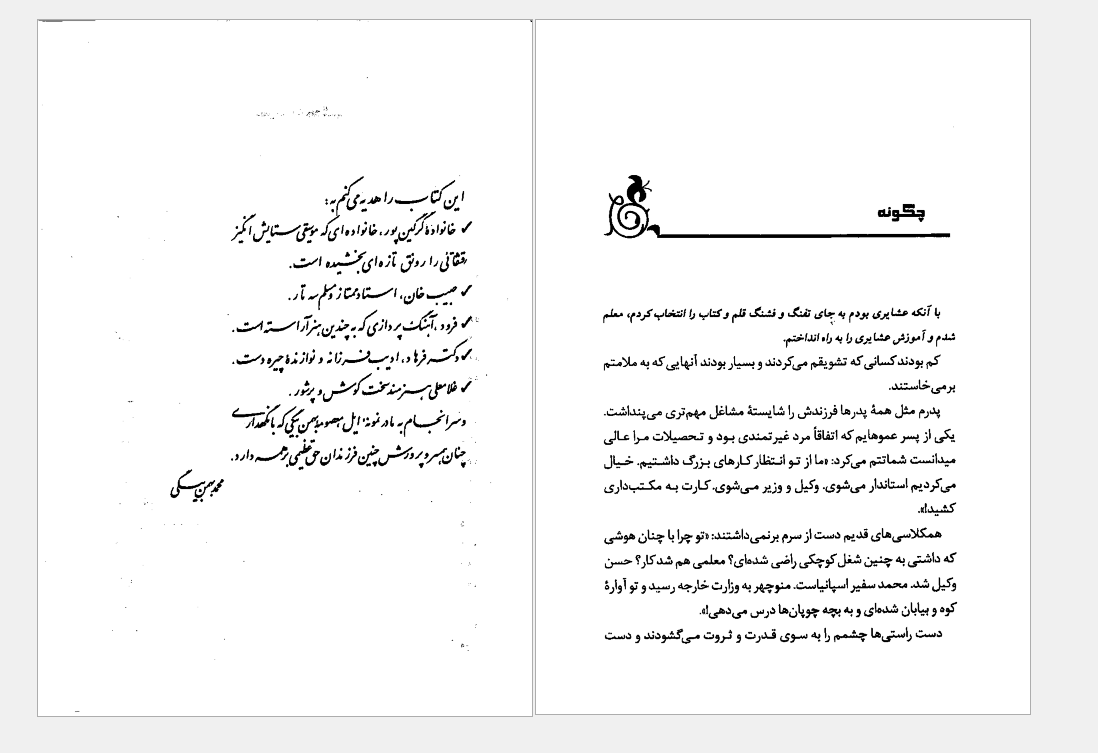 این کتاب را هدیه می‌کنم به:
✓ خانوادهٔ گرگین‌پور، خانواده‌ای که موسیقی ستایش انگیز
قشقائی را رونق تازه‌ای بخشیده است.
✓ حبیب خان، استاد ممتاز و مسلم سه تار.
✓ فرود، آهنگ پردازی که به چندین هنر آراسته است.
✓ دکتر فرهاد، ادیب فرزانه و نوازندهٔ چیره دست.
✓ غلامعلی هنرمند سخت کوش و پرشور.
و سرانجام به مادر نمونهٔ ایل معصومه بهمن بیگی که با نگهداری
چنان همسر و پرورش چنین فرزندان حق عظیمی بر همه دارد.
محمد بهمن بیگی
چگونه
با آنکه عشایری بودم به جای تفنگ و فشنگ قلم و کتاب را انتخاب کردم، معلم
شدم و آموزش عشایری را به راه انداختم.
کم بودند کسانی که تشویقم می‌کردند و بسیار بودند آنهایی که به ملامتم
برمی‌خاستند.
پدرم مثل همهٔ پدرها فرزندش را شایستهٔ مشاغل مهم‌تری می‌پنداشت.
یکی از پسر عموهایم که اتفاقاً مرد غیرتمندی بود و تحصیلات مرا عالی
میدانست شماتتم می‌کرد: «ما از تو انتظار کارهای بزرگ داشتیم. خیال
می‌کردیم استاندار می‌شوی. وکیل و وزیر می‌شوی. کارت به مکتب‌داری
کشید!».
همکلاسی‌های قدیم دست از سرم برنمی‌داشتند: «تو چرا با چنان هوشی
که داشتی به چنین شغل کوچکی راضی شده‌ای؟ معلمی هم شد کار؟ حسن
وکیل شد. محمد سفیر اسپانیاست. منوچهر به وزارت خارجه رسید و تو آوارهٔ
کوه و بیابان شده‌ای و به بچه چوپان‌ها درس می‌دهی!».
دست راستی‌ها چشمم را به سوی قدرت و ثروت می‌گشودند و دست